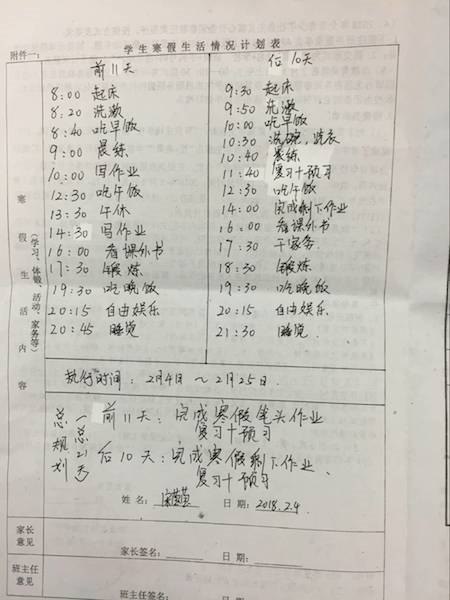 附件一：
学生寒假生活情况计划表
前11天
8:00 起床
8:20 洗漱
8:40 吃早饭
9:00 晨练
10:00 写作业
12:30 吃午饭
13:30 午休
14:30 写作业
16:00 看课外书
17:30 锻炼
19:30 吃晚饭
20:15 自由娱乐
20:45 睡觉
后10天
9:30 起床
9:50 洗漱
10:00 吃早饭
10:30 洗碗，洗衣
10:40 晨练
11:40 复习+预习
12:30 吃午饭
14:00 完成剩下作业
16:00 看课外书
17:30 干家务
18:30 锻炼
19:30 吃晚饭
20:15 自由娱乐
21:30 睡觉
寒假生活内容
（学习、体锻、活动、家务等）
执行时间：2月4日～2月25日
总规划
前11天：完成寒假笔头作业
复习+预习
后10天：完成寒假剩下作业
复习+预习
姓名：
日期：2018.2.4
家长意见
家长签名：
日期：
班主任意见
班主任签名：
日期：